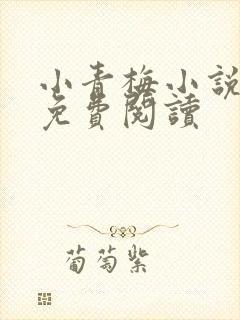 小青梅小說
免費閱讀
葡萄紫